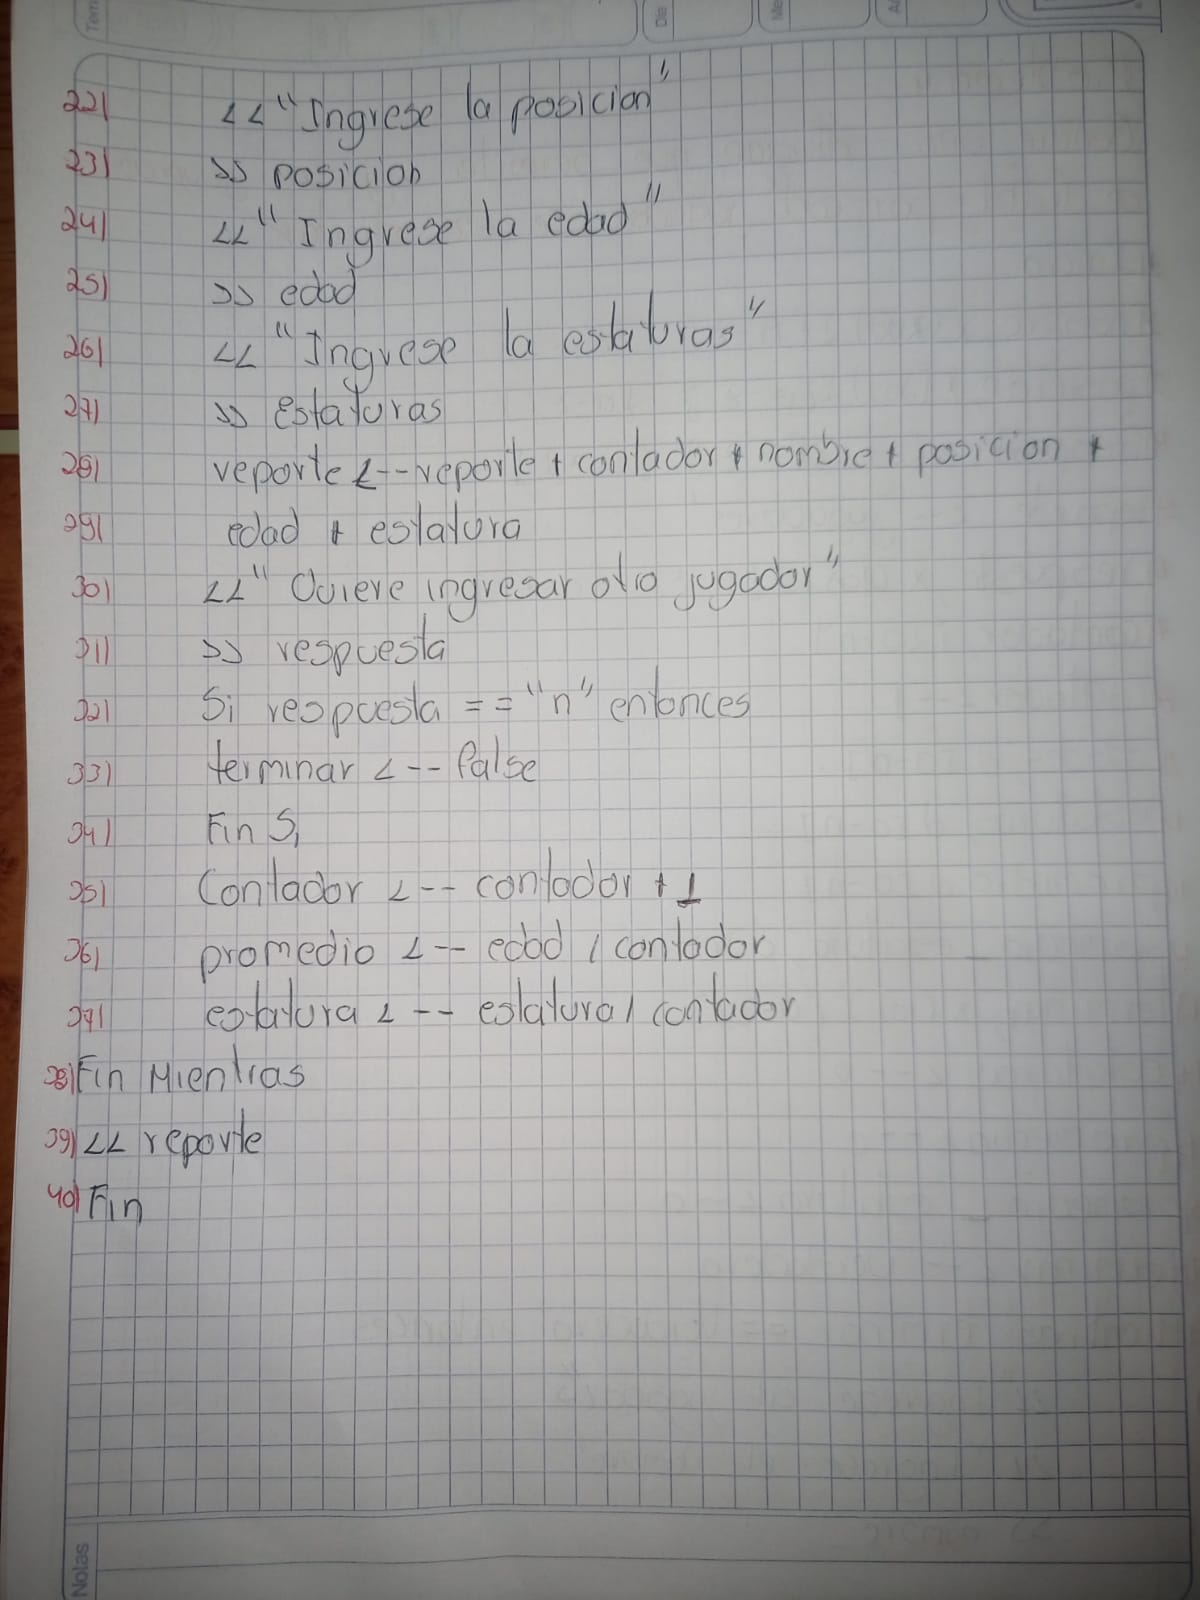 Tem
Dia
Me
22) << "Ingrese la posicion"
23) >> posicion
24) << "Ingrese la edad"
25) >> edad
26) << "Ingrese la estaturas"
27) >> estaturas
28) reporte <-- reporte + contador + nombre + posicion +
29) edad + estatura
30) << "Quiere ingresar otro jugador"
31) >> respuesta
32) Si respuesta == "n" entonces
33) terminar <-- false
34) Fin Si
35) Contador <-- contador + 1
36) promedio <-- edad / contador
37) estatura <-- estatura / contador
38) Fin Mientras
39) << reporte
40) Fin
Notas